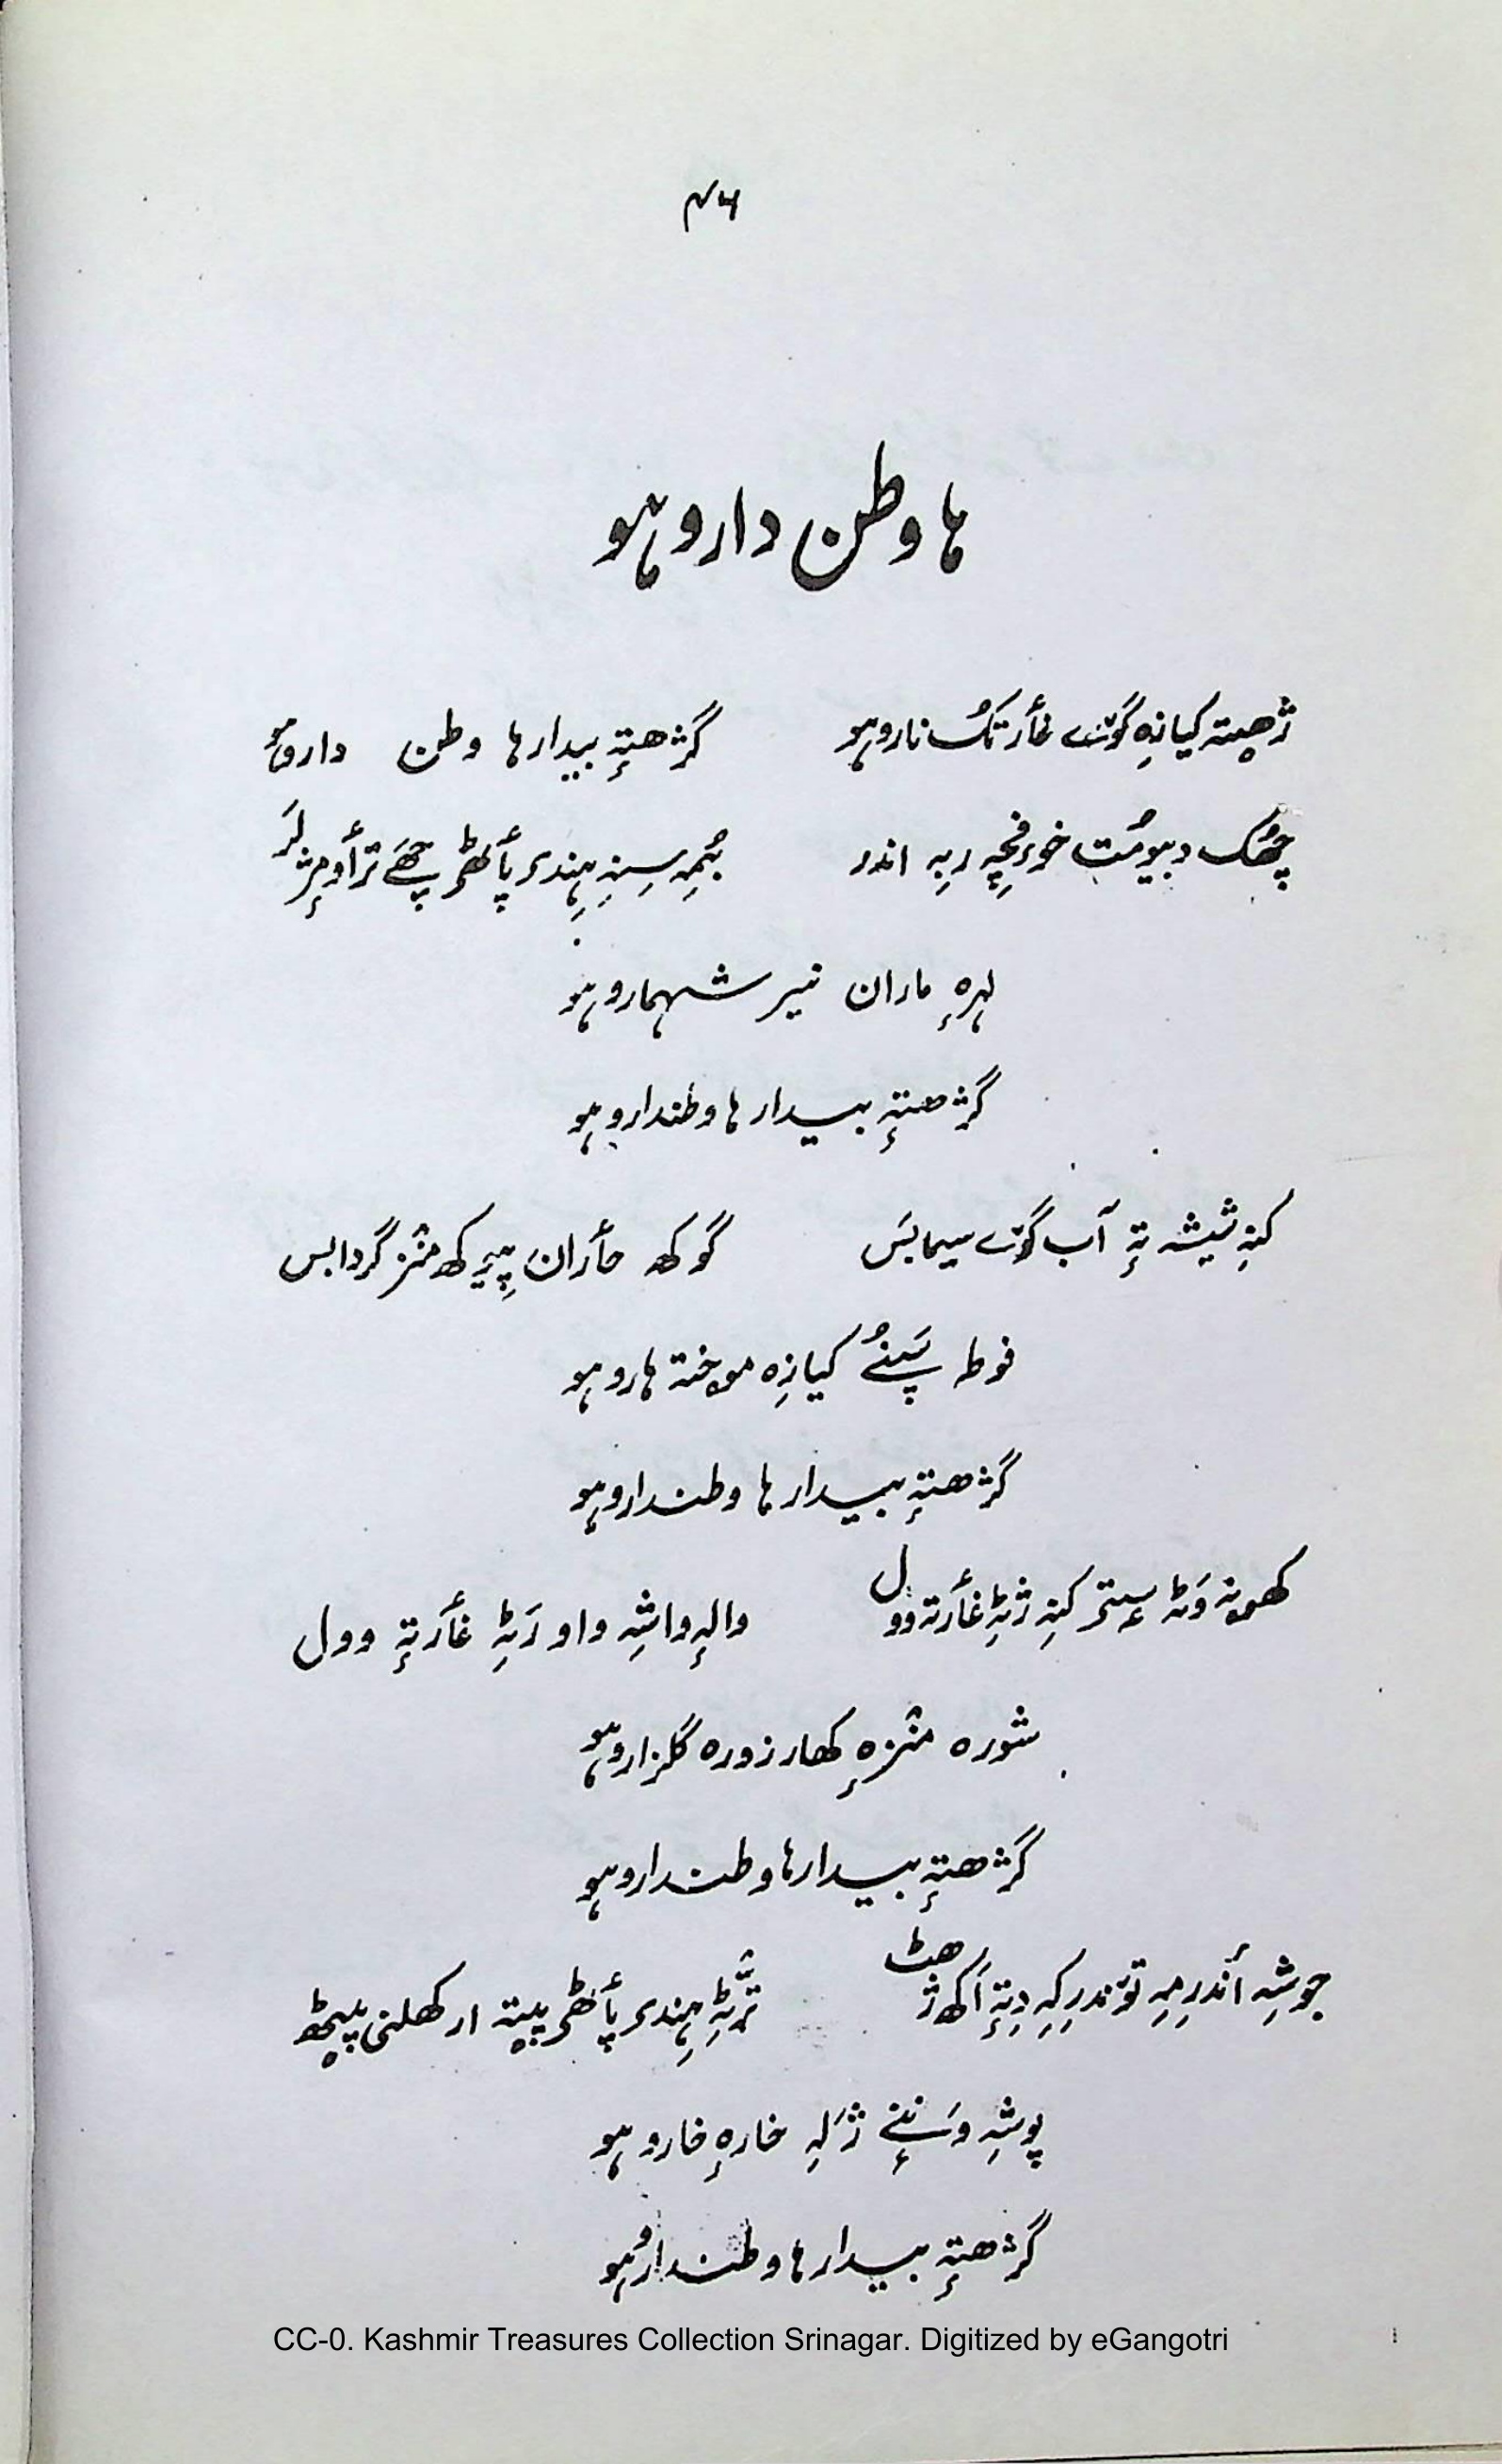 ۴۶
ہا وطن دارو ہو
ژھیتہ کیازِہ گوٚے غٲرتُک نارو ہو گژھتہٕ بیدار ہا وطن دارو ہو
چھُک دبیومُت خورٕ فچہِ ربہِ اندر بُمہِ سِنہِ ہِندۍ پٲٹھۍ چھَے ترٲومٕژ لَر
لہرہٕ ماران نیر شہمارو ہو
گژھتہٕ بیدار ہا وطندارو ہو
کنہِ شیشہ تہٕ آب گوٚے سیمابَس گوکھ حٲران پیٚیکھ منٛز گردابس
فوطہ سَپنُے کیازِہ موختہ ہارو ہو
گژھتہٕ بیدار ہا وطندارو ہو
کھوتہ وَٹہ ستۍ کنہِ ژٹہِ غٲرتہ وول والہٕ واشہِ واو رَٹہِ غٲرتہٕ وول
شورہ منٛزہٕ کھار زورہ گلزارو ہو
گژھتہٕ بیدار ہا وطندارو ہو
جوشہِ أندرِمہِ توٚندرِکہِ دِتہٕ اَکھ ژھٹ ترٛٹہِ ہِندۍ پٲٹھۍ پیتہ ار کھلنی پیٹھ
پوشہِ وَننٕے ژلہِ خارہٕ خارو ہو
گژھتہٕ بیدار ہا وطندارو ہو
CC-0. Kashmir Treasures Collection Srinagar. Digitized by eGangotri